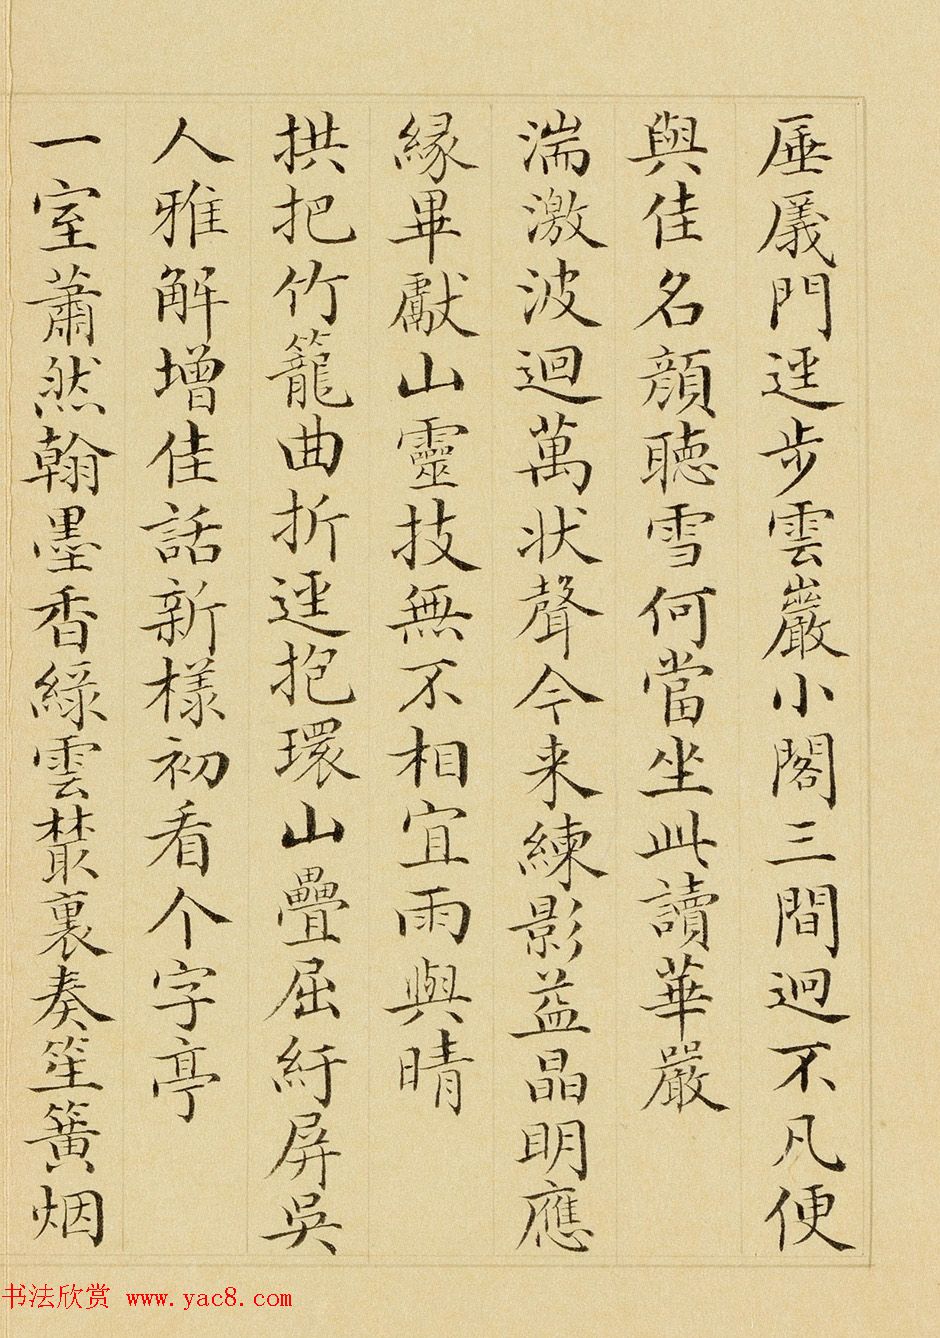 厜㕒門逕步雲巖小閣三間逈不凡便
與佳名顏聽雪何當坐此讀華嚴
湍激波迴萬状聲今来練影益晶明應
緣畢獻山靈技無不相宜雨與晴
拱把竹籠曲折逕抱環山疊屈紆屏吳
人雅解增佳話新樣初看个字亭
一室蕭然翰墨香綠雲叢裏奏笙簧烟
书法欣赏 www.yac8.com